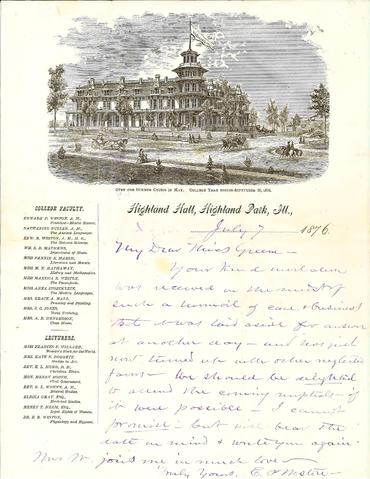 OPEN FOR SUMMER GUESTS IN MAY. COLLEGE YEAR BEGINS SEPTEMBER
Highland Hall, Highland Park, Ill.,
July 7 1876.
COLLEGE FACULTY.
EDWARD P. WESTON, A. M.,
NATHANIEL BUTLER, A. M.,
The Ancient Languages.
EDW. B. WESTON, A. M., M. D.,
The Natural Sciences.
Department of Music.
Literature and Morals.
MISS M. E. HATHAWAY,
History and Mathematics.
The Pianoforte.
The Modern Languages.
MISS GRACE A. HALL,
Drawing and Painting.
Vocal Training.
MISS A. B. HENDERSON,
Class Music.
LECTURERS.
MISS FRANCES E. WILLARD,
Woman's Work for the World.
Studies in Art.
Christian Ethics.
HON. HENRY BOOTH,
Civil Government.
Biblical Studies.
ELISHA GRAY, ESQ.,
Electrical Studies.
Legal Rights of Women.
DR. E. B. WESTON,
Physiology and Hygiene.
My Dear Miss Greene -
Your kind invitation
was received in the midst of
such a turmoil of care & business
that it was laid aside for answer
at another day - and has just
now turned up with other neglected
- We should be delighted
to attend the coming nuptials - if
it were possible I cannot
promise - but will bear the
date in mind & write you again.
Mrs W. joins me in much love -
Truly Yours, E. P. Weston